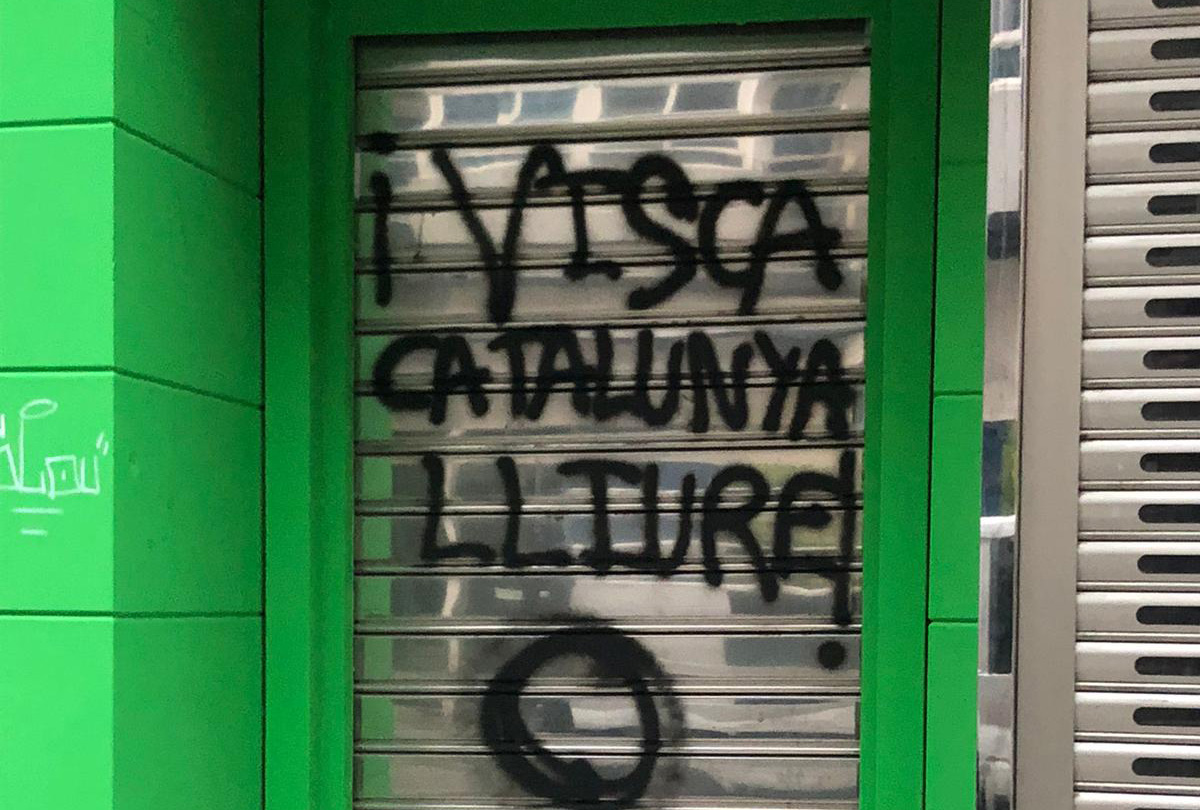 ¡VISCA
CATALUNYA
LLIURE!
O